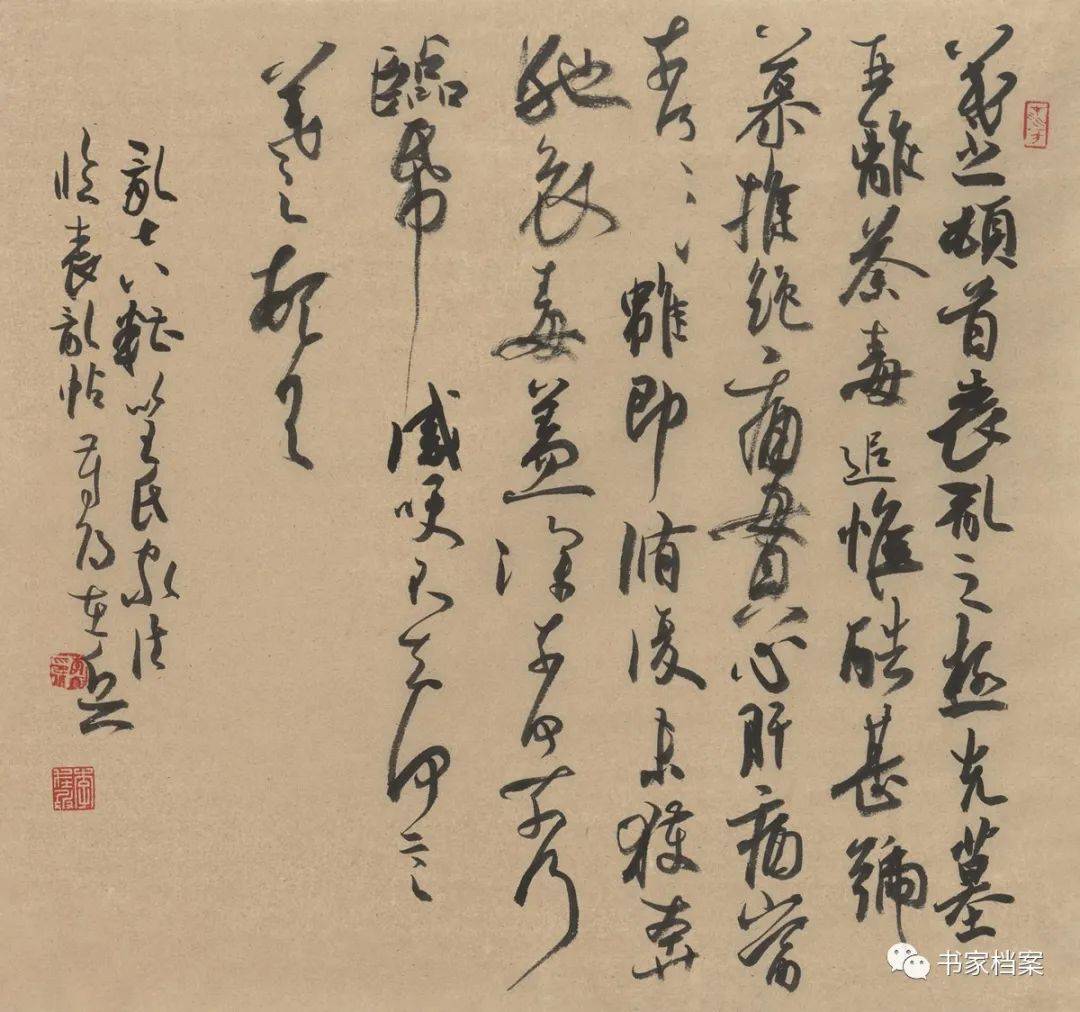 羲之頓首喪亂之極先墓
再離荼毒追惟酷甚號
慕摧絕痛貫心肝痛當
奈何〻〻雖即脩復未獲奔
馳哀毒益深奈何奈何
臨紙感哽不知何言
羲之頓首
亂七八糟氏家法
臨喪亂帖
书家档案